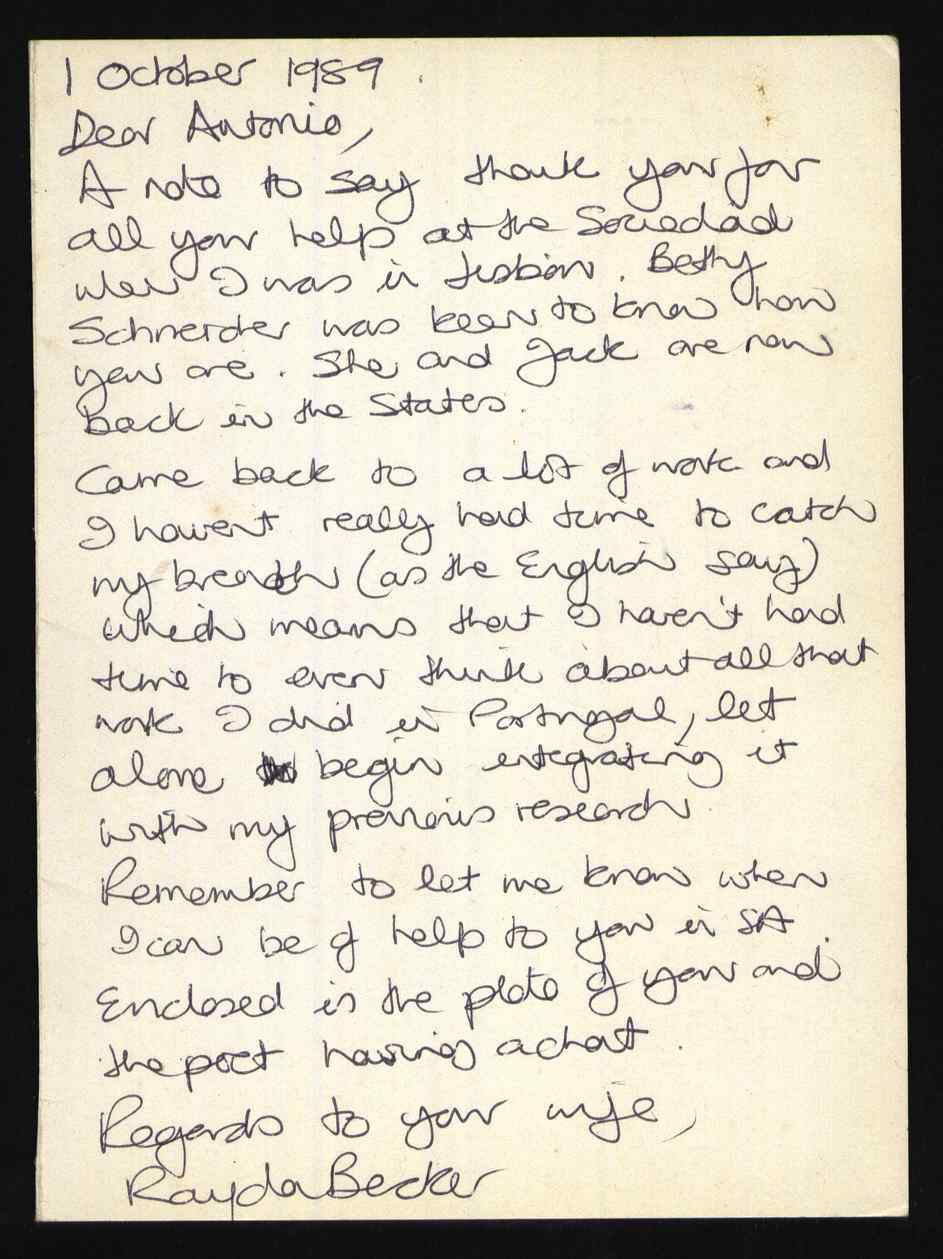 1 October 1989
Dear Antonio,
A note to say thank you for
all your help at the Sociedad
when I was in Lisbon. Betty
Schneider was keen to know how
you are. She and Jack are now
back in the States.
Came back to a lot of work and
I haven't really had time to catch
my breath (as the English say)
which means that I haven't had
time to even think about all that
work I did in Portugal, let
alone begin integrating it
with my previous research.
Remember to let me know when
I can be of help to you in SA.
Enclosed is the photo of you and
the poet having a chat.
Regards to your wife,
Rayda Becker